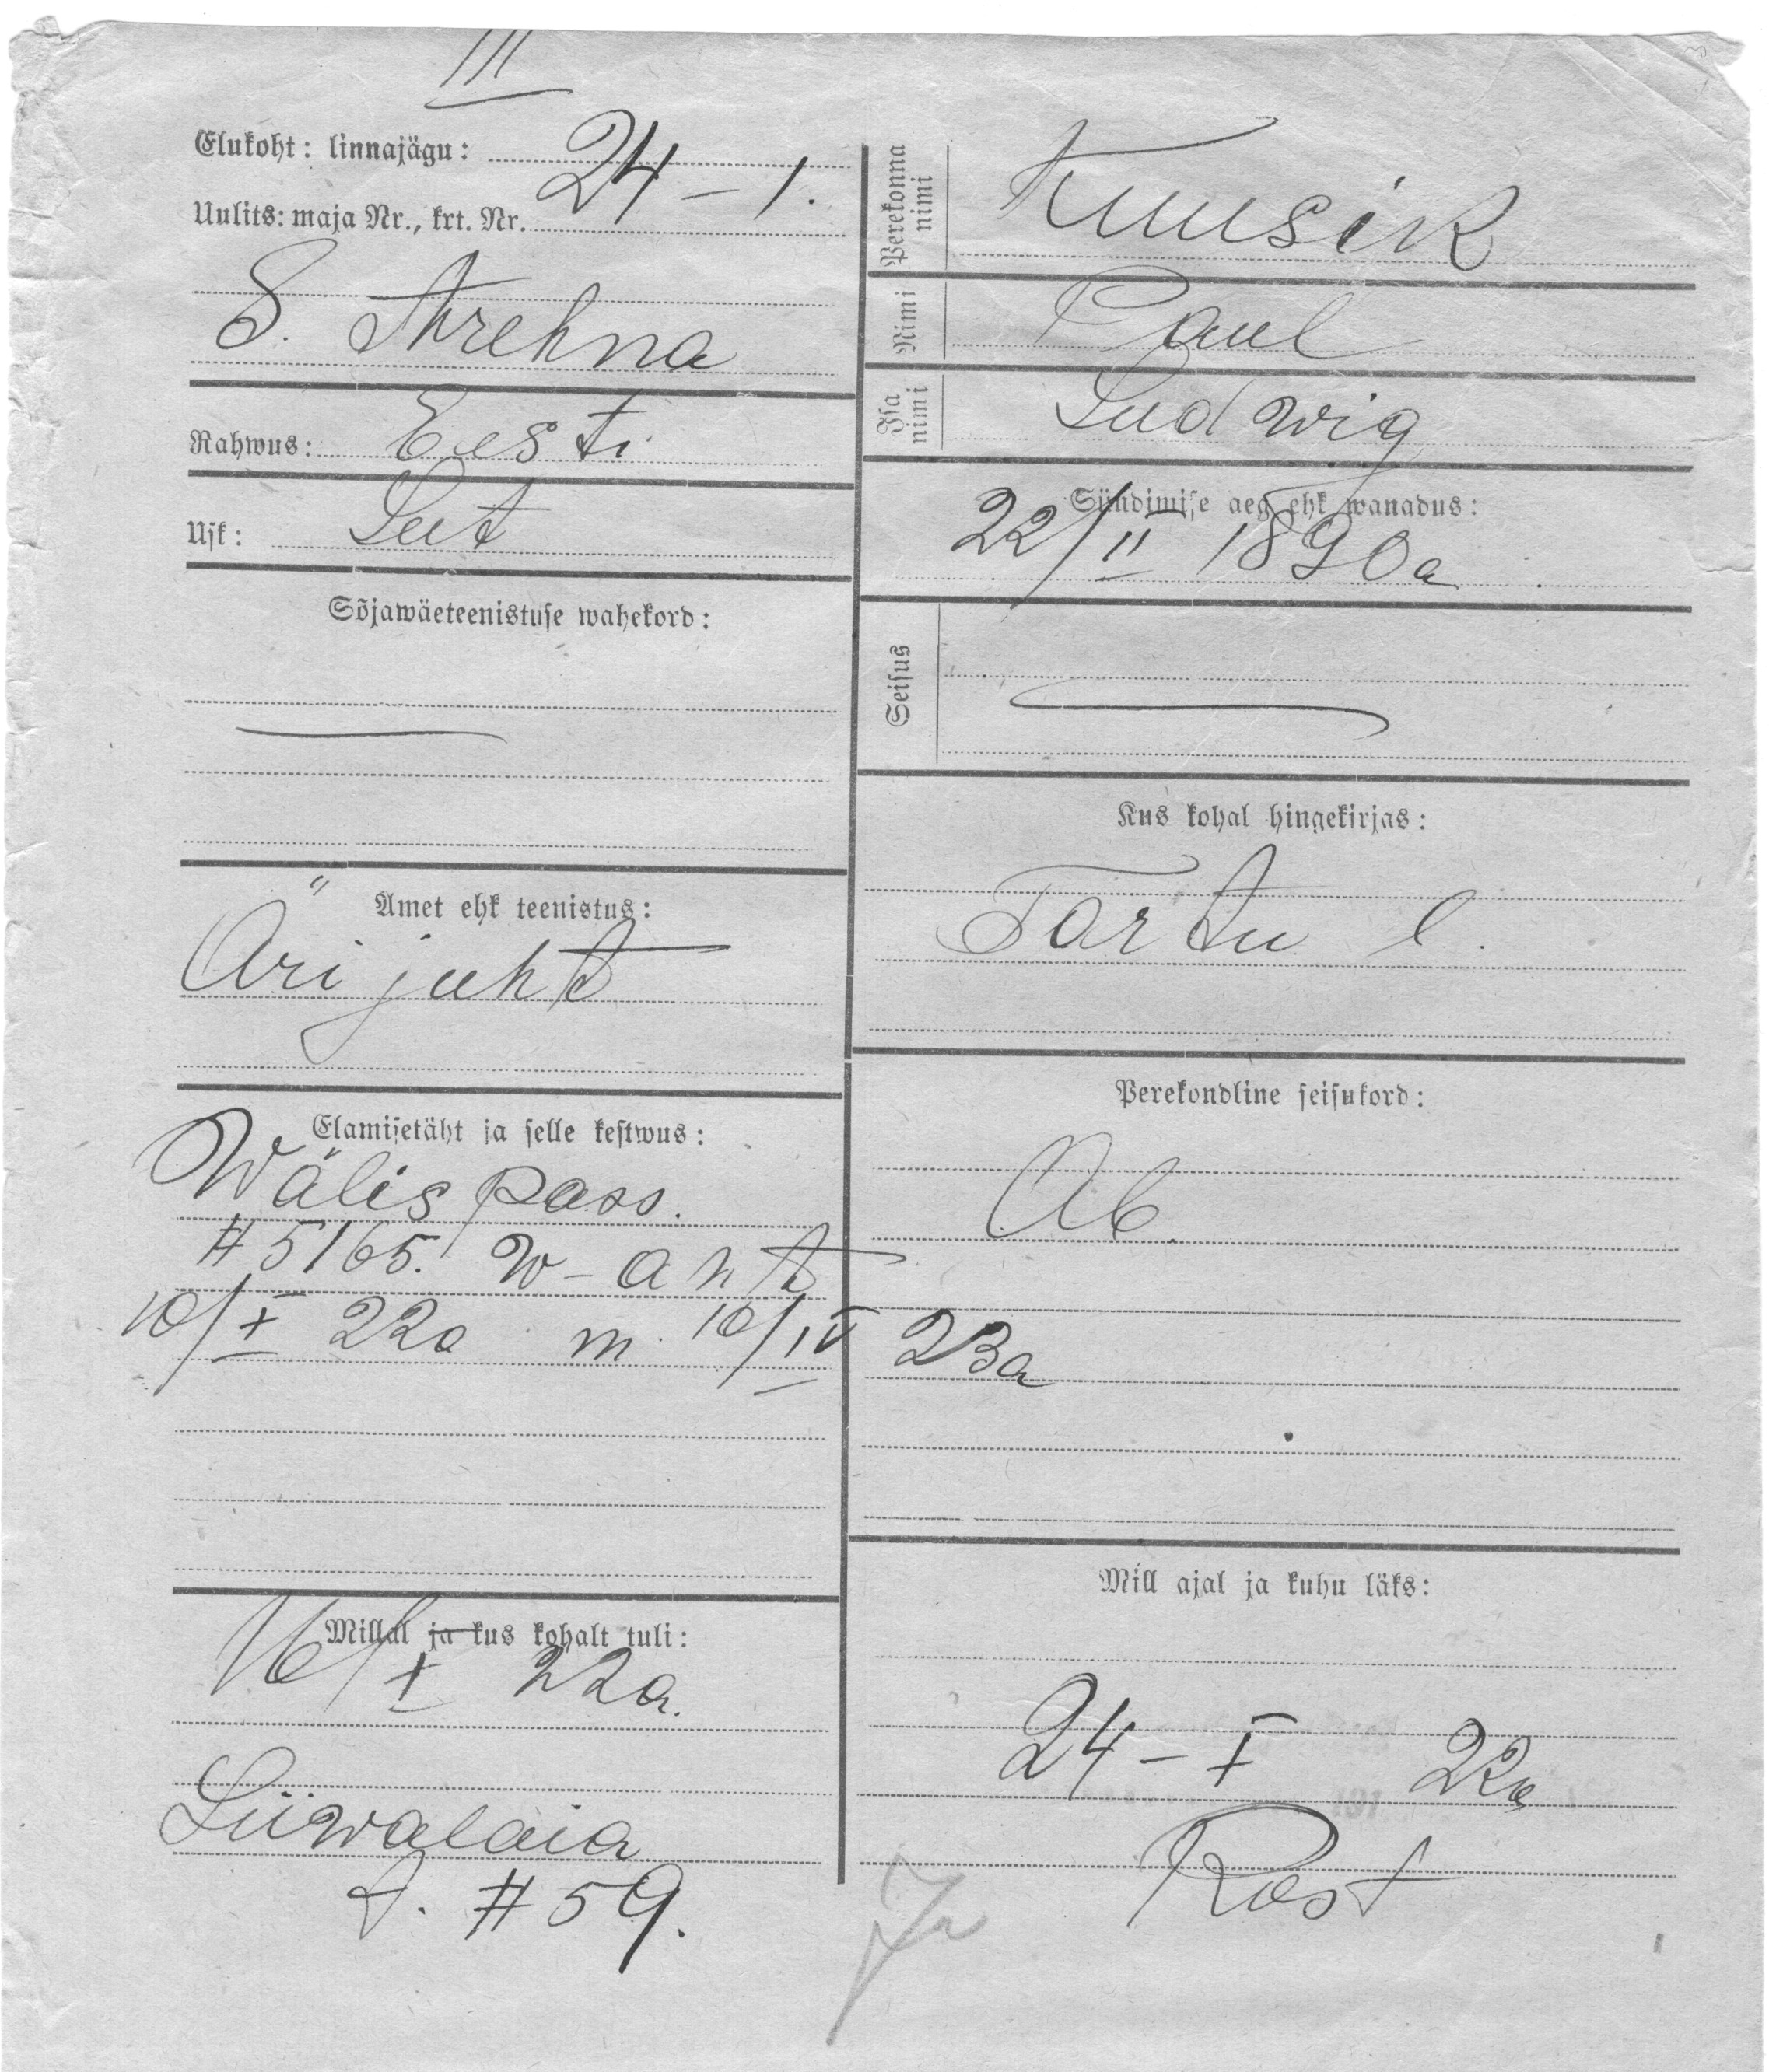 III
Elukoht: linnajägu:
24 – 1.
Uulits: maja Nr., krt. Nr.
S.
Rahwus: Eesti
Usk: Lut
Sõjawäeteenistuse wahekord:
Amet ehk teenistus:
Äri juht
Elamisetäht ja selle kestwus:
Wälis pass.
# 5165. w-ant
10/X 22a m. 10/IV 23a
Millal ja kus kohalt tuli:
16/X 22a.
Liiwalaia
t. # 59.
Perekonna nimi
Kuusik
Nimi
Paul
Isa nimi
Ludwig
Sündimise aeg ehk wanadus:
22/II 1890a
Seisus
Kus kohal hingekirjas:
Tartu l.
Perekondline seisukord:
Ab.
Mill ajal ja kuhu läks:
24 – X 22a
191